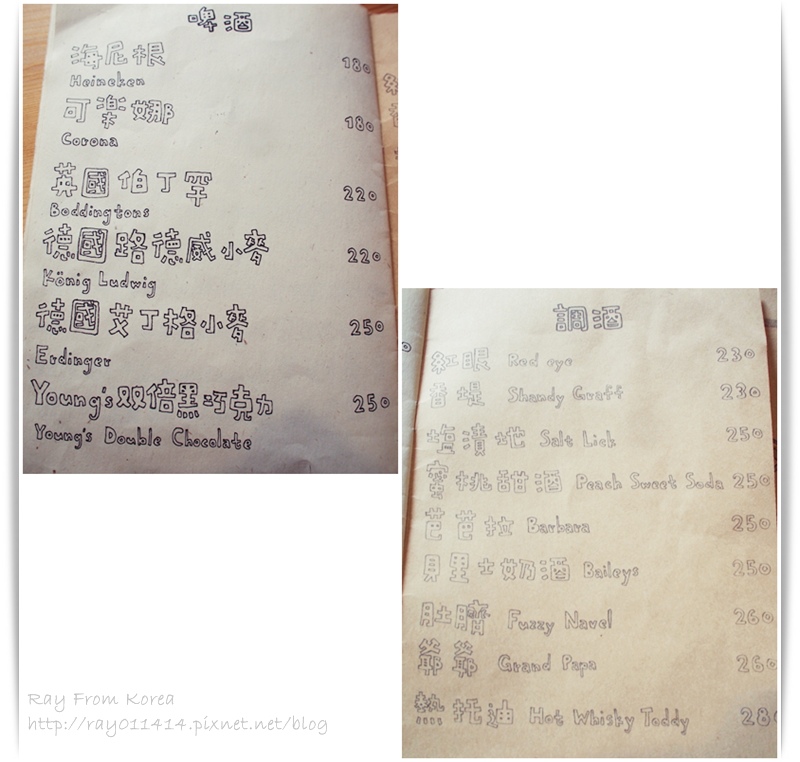 啤酒
海尼根 180
Heineken
可樂娜 180
Corona
英國伯丁罕 220
Boddingtons
德國路德威小麥 220
König Ludwig
德國艾丁格小麥 250
Erdinger
Young's双倍黑巧克力 250
Young's Double Chocolate
調酒
紅眼 Red eye 230
香堤 Shandy Graff 230
塩漬地 Salt Lick 250
蜜桃甜酒 Peach Sweet Soda 250
芭芭拉 Barbara 250
貝里士奶酒 Baileys 250
肚臍 Fuzzy Navel 260
爺爺 Grand Papa 260
熱托迪 Hot Whisky Toddy 280
Ray From Korea
http://ray011414.pixnet.net/blog